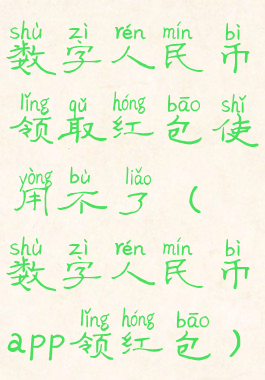 shù zì rén mín bì
数字人民币
lǐng qǔ hóng bāo shǐ
领取红包使
yòng bù liǎo
用不了（
shù zì rén mín bì
数字人民币
lǐng hóng bāo
app领红包）